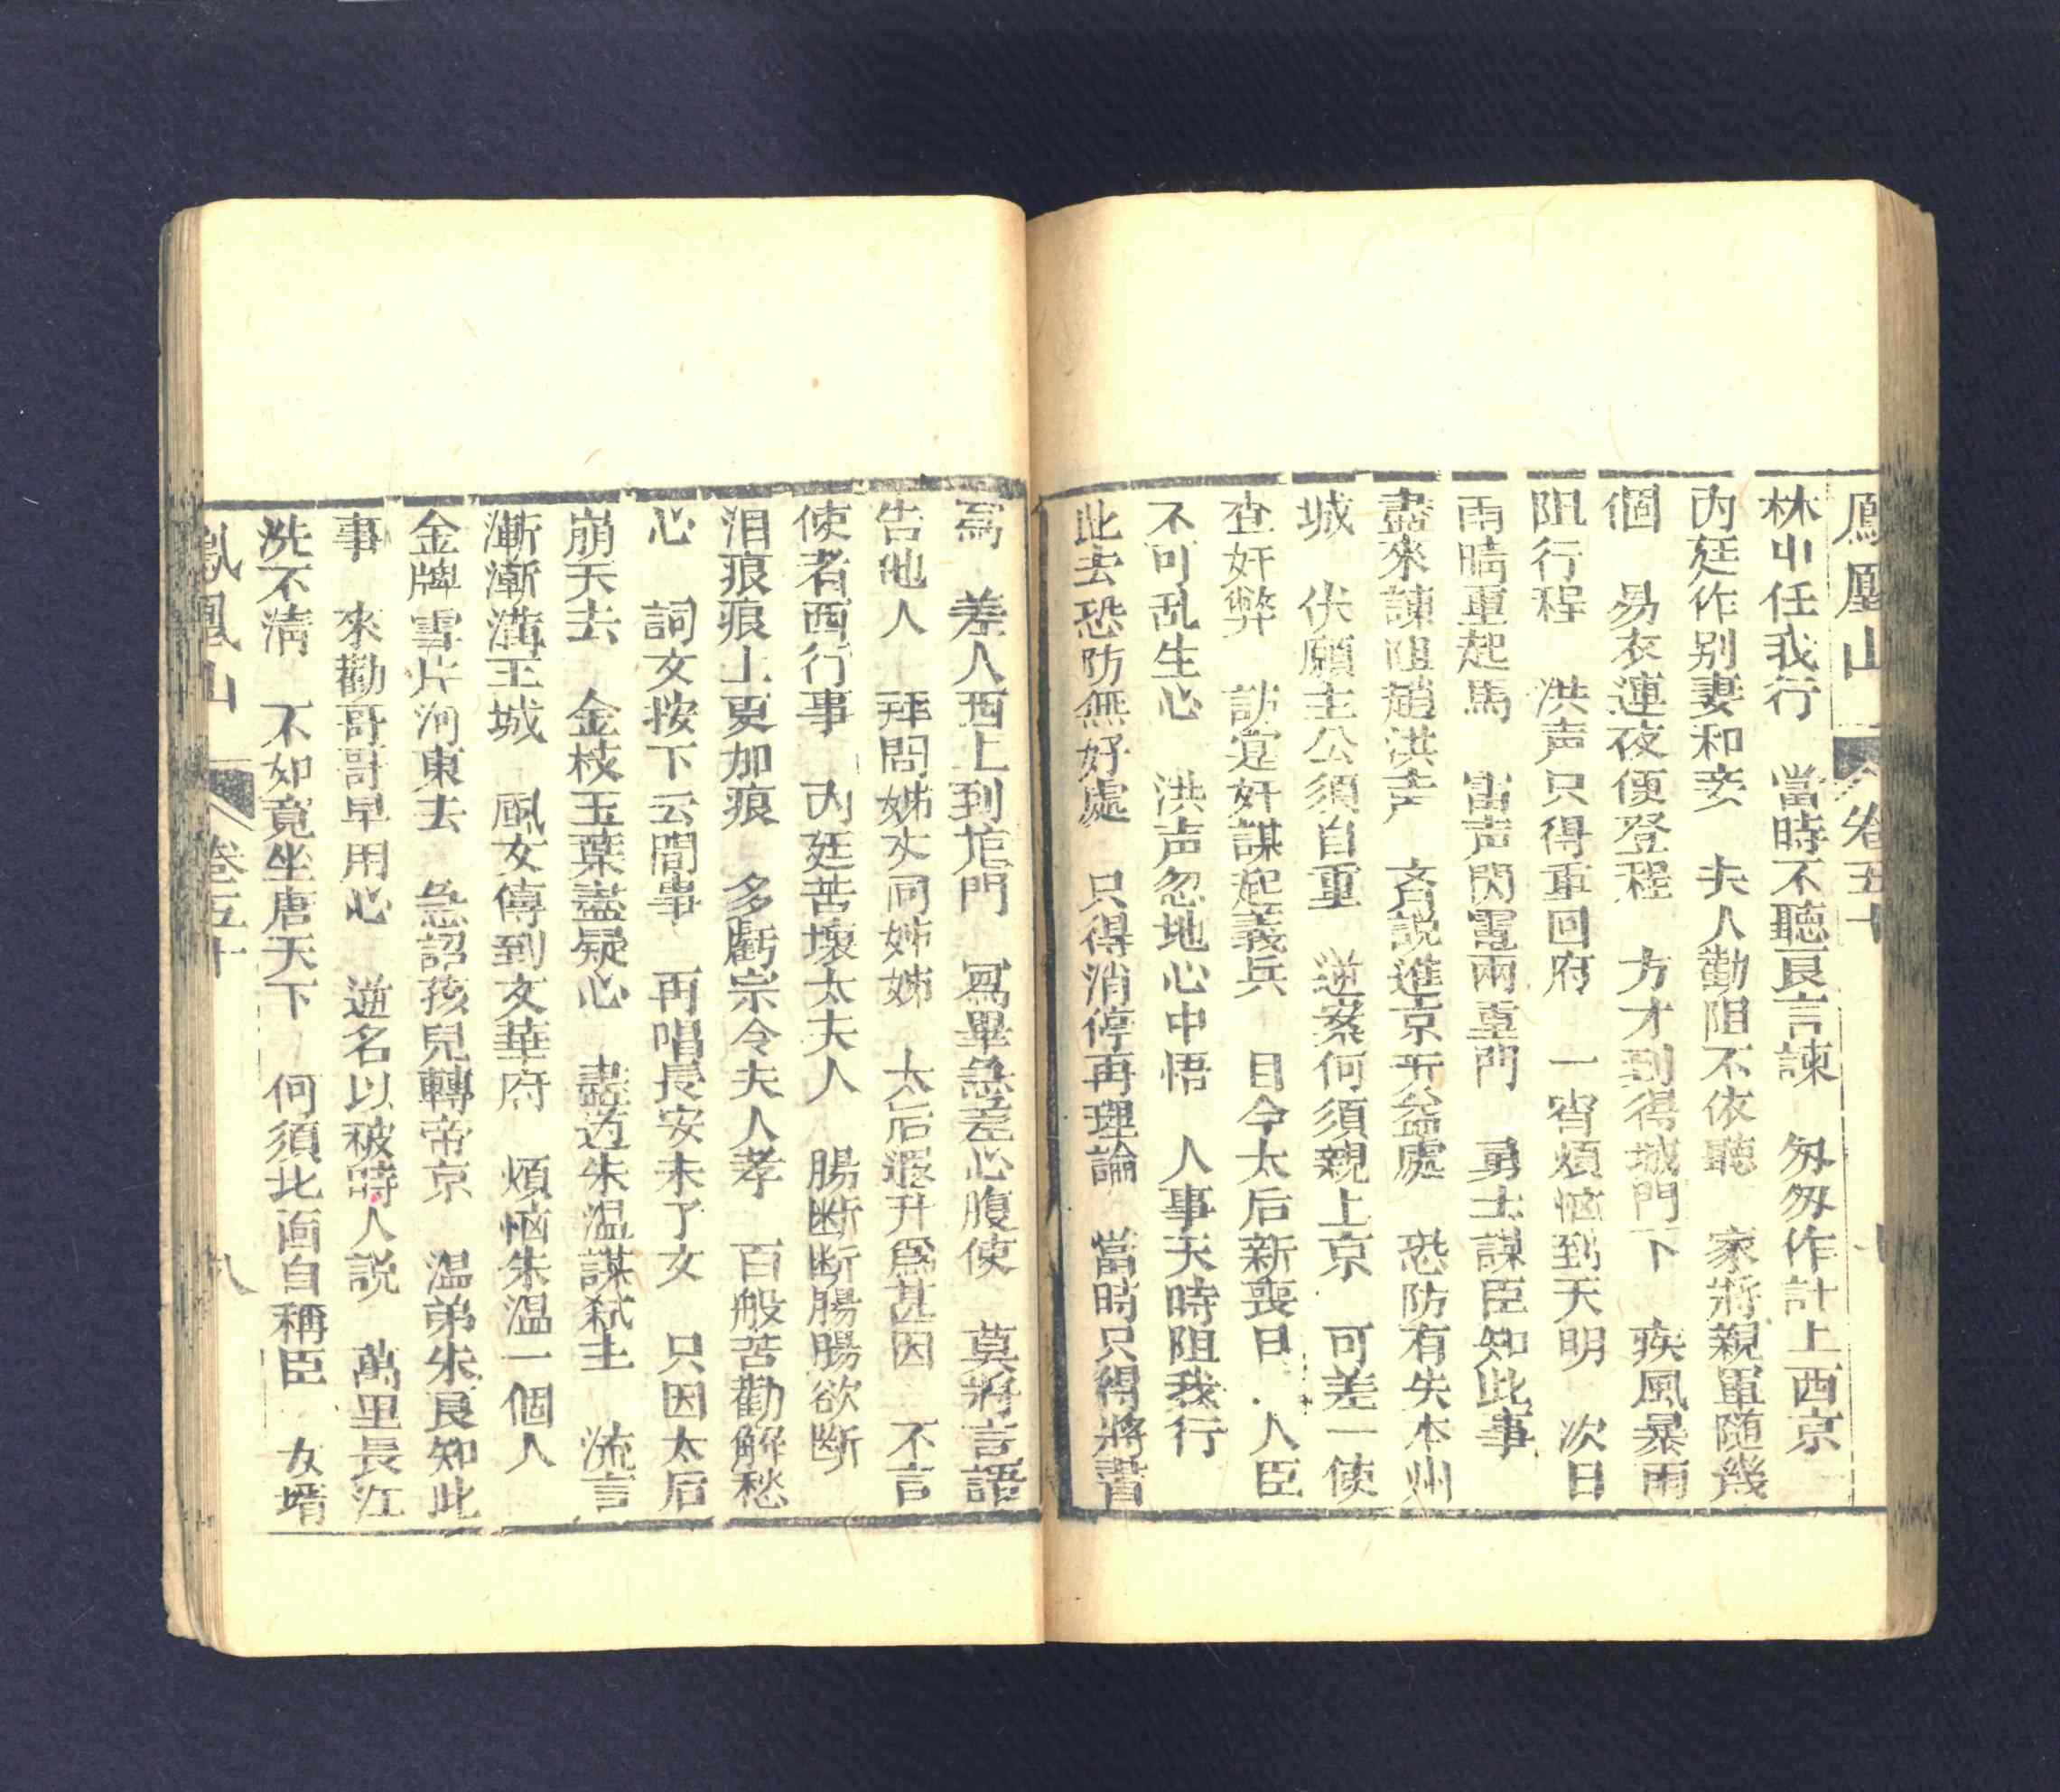 鳳凰山 卷五十 七
林中任我行 當時不聽良言諫 匆匆作計上西京
內廷作别妻和妾 夫人勸阻不依聽 家將親軍随幾
個 易衣連夜便登程 方才到得城門下 疾風暴雨
阻行程 洪声只得重回府 一宵煩惱到天明 次日
雨晴重起馬 雷声閃電兩重門 勇士謀臣知此事
盡來諫阻趙洪声 齐說進京无益處 恐防有失本州
城 伏願主公須自重 逆案何須親上京 可差一使
查奸弊 訪寔奸謀起義兵 目今太后新喪日 人臣
不可乱生心 洪声忽地心中悟 人事天時阻我行
此去恐防無好處 只得消停再理論 當時只得將書
寫 差人西上到旭門 寫畢急差心腹使 莫將言語
告他人 拜問姊丈同姊姊 太后遐升爲甚因 不言
使者西行事 內廷苦壞太夫人 腸断断腸腸欲断
泪痕痕上更加痕 多虧宗令夫人孝 百般苦勸解愁
心 詞女按下云間事 再唱長安未了女 只因太后
崩天去 金枝玉葉盡疑心 盡道朱温謀弒主 流言
漸漸滿王城 風女傳到文華府 煩惱朱温一個人
金牌雪片河東去 急詔孩兒轉帝京 温弟朱良知此
事 來勸哥哥早用心 逆名以被時人説 萬里長江
洗不清 不如竟坐唐天下 何須北面自稱臣 女壻
鳳凰山 卷五十 八